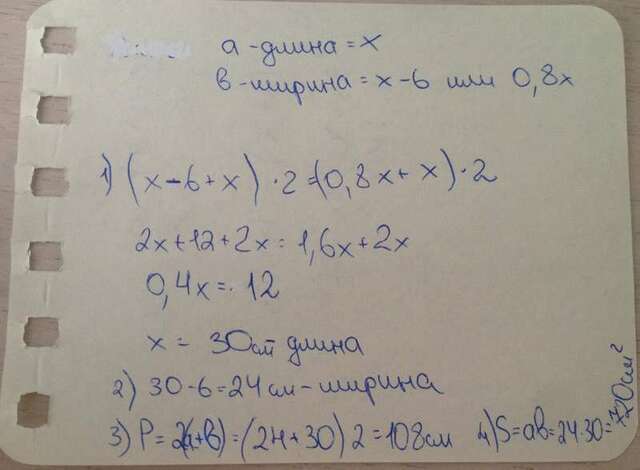 а - длина = х
в - ширина = х - 6 или 0,8х
1) (х - 6 + х) · 2 = (0,8х + х) · 2
2х + 12 + 2х = 1,6х + 2х
0,4х = 12
х = 30см длина
2) 30 - 6 = 24 см - ширина
3) Р = 2(а+в) = (24 + 30) 2 = 108 см
4) S = ав = 24 · 30 = 720 см²